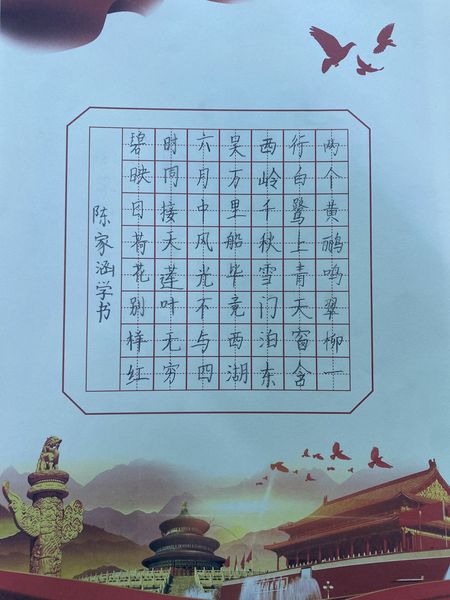 两个黄鹂鸣翠柳一
行白鹭上青天窗含
西岭千秋雪门泊东
吴万里船毕竟西湖
六月中风光不与四
时同接天莲叶无穷
碧映日荷花别样红
陈家涵学书